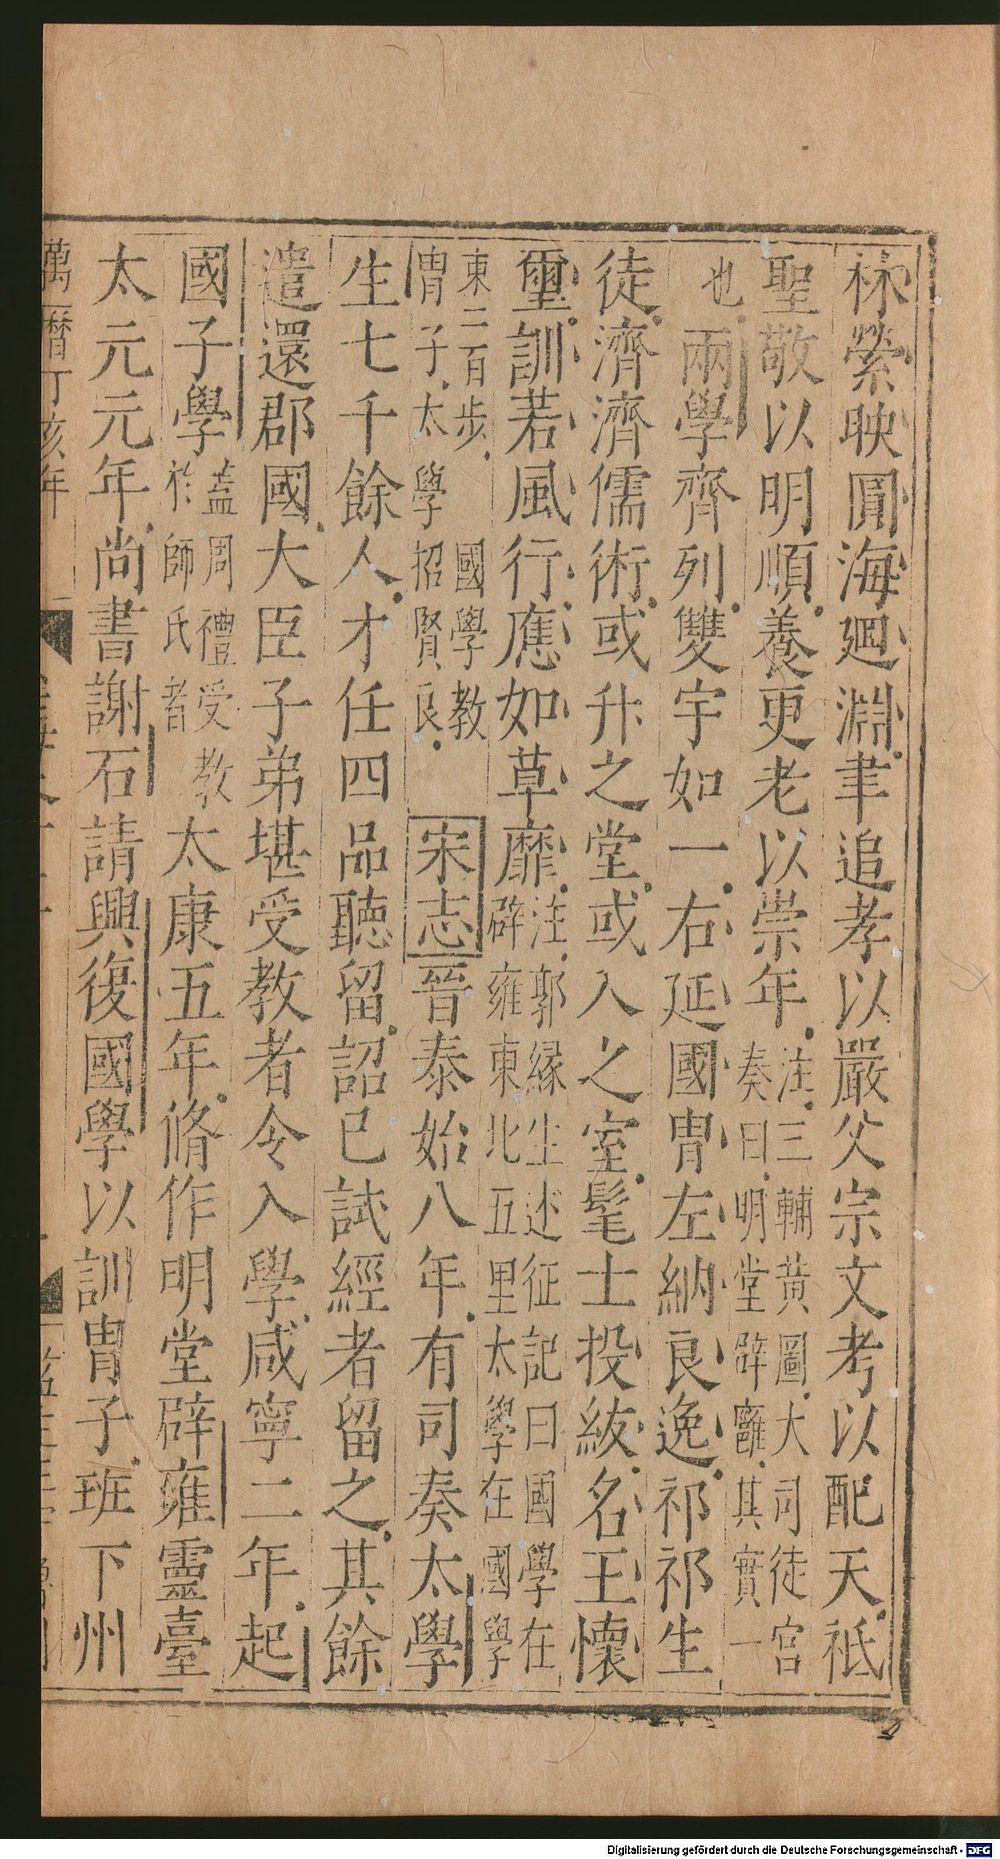 林縈映圓海廻淵聿追孝以嚴父宗文考以配天祗
聖敬以明順養更老以崇年注三輔黃圖大司徒宮
奏曰明堂辟雍其實一
也兩學齊列雙宇如一右延國胄左納良逸祁祁生
徒濟濟儒術或升之堂或入之室髦士投紱名王懷
璽訓若風行應如草靡注郭緣生述征記曰國學在
辟雍東北五里太學在國學
東二百步國學教
胄子太學招賢良
宋志晉泰始八年有司奏太學
生七千餘人才任四品聽留詔已試經者留之其餘
遣還郡國大臣子弟堪受教者令入學咸寧二年起
國子學蓋周禮受教
於師氏者
太康五年脩作明堂辟雍靈臺
太元元年尚書謝石請興復國學以訓胄子班下州
萬曆丁亥年
Digitalisierung gefördert durch die Deutsche Forschungsgemeinschaft - DFG